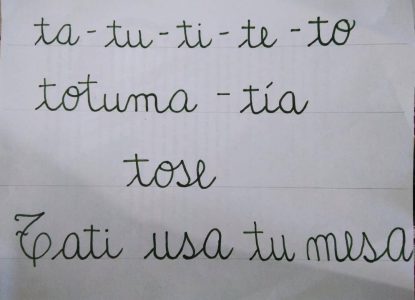 ta - tu - ti - te - to
totuma - tía
tose
Tati usa tu mesa